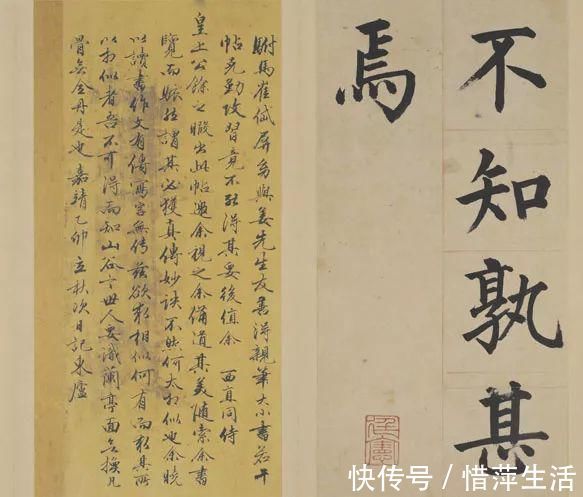 不知孰甚
焉
駙馬崔岱屏為與姜先生友善得親筆大小書若干
帖克勤改習竟不能得其要後值余西直同侍
皇上公餘之暇出此帖邀余視之余備道其美隨索余書
覽而賅然謂其必獲真傳妙訣不然何太相似也余曉
以讀書作文有傳寫字無傳茲欲求相似何有而求其所
以相似者吾不可得而知山谷云世人要識蘭亭面無換凡
骨無金丹是也嘉靖乙卯立秋次日記東廬
快传号/惜萍生活